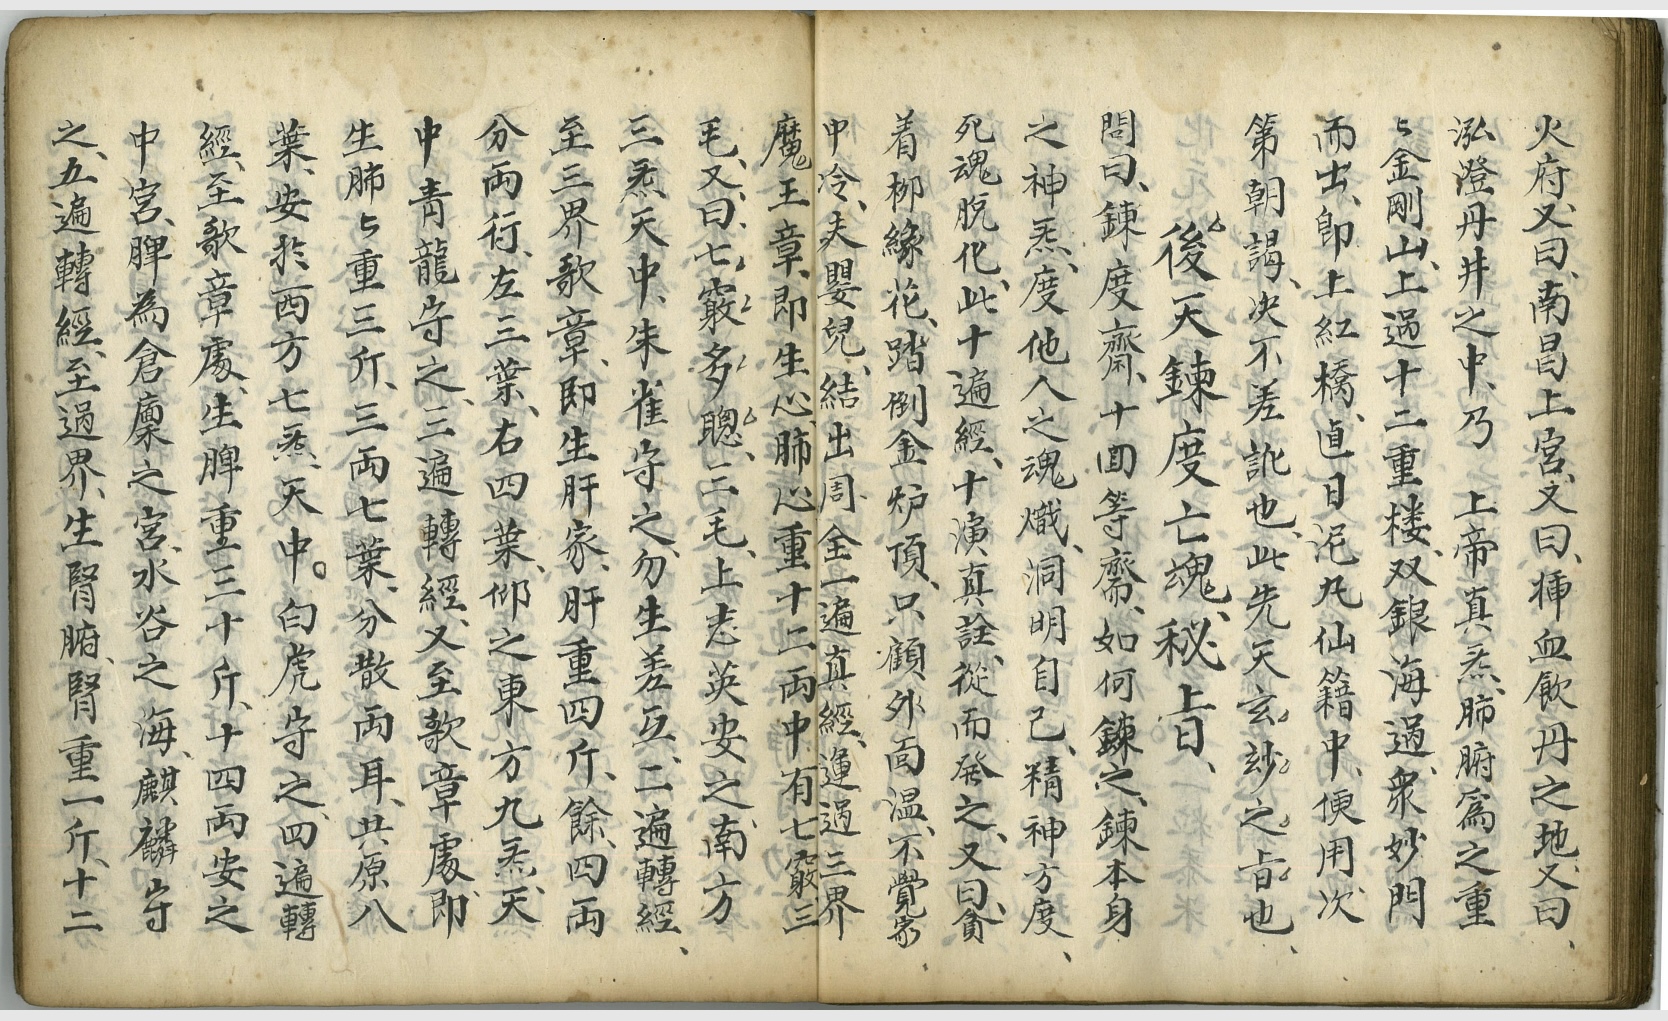 火府、又曰、南昌上宮、又曰、揷血飲丹之地、又曰、
泓澄丹井之中、乃　上帝真炁、肺腑爲之重
〻金剛山、上過十二重楼、双銀海過、衆妙門
而出、卽上紅橋、直日泥丸仙籍中、便用次
第朝謁、决不差訛也、此先天玄妙之旨也、
後天鍊度亡魂、秘旨、
問曰、鍊度齋、十囬等齋、如何鍊之、鍊本身
之神炁、度他人之魂熾、洞明自己、精神方度、
死魂脫化、此十遍經、十演真詮、從而發之、又曰、貪
着柳緣花、踏倒金炉頂、只顧外面温、不覺家
中冷、夫嬰兒、結出周全一遍真經、運過三界
魔王章、即生心肺、心重十二両中有七竅、三
毛、又曰、七竅多聰、二毛、上志英安之、南方
三炁天中、朱雀守之、勿生差互、二遍轉經、
至三界歌章、即生肝家、肝重四斤、餘、四両
分両行、左三葉、右四葉、仰之東方九炁、天
中青龍守之、三遍轉經、又至歌章處、即
生肺〻重三斤、三両七葉、分散両耳、共原八
葉、安於西方七炁天中。白虎守之、四遍轉
經、至歌章處、生脾重三十斤、十四両安之
中宮、脾為倉廩之宮、水谷之海、麒麟守
之、五遍轉經、至過界、生腎腑、腎重一斤、十二